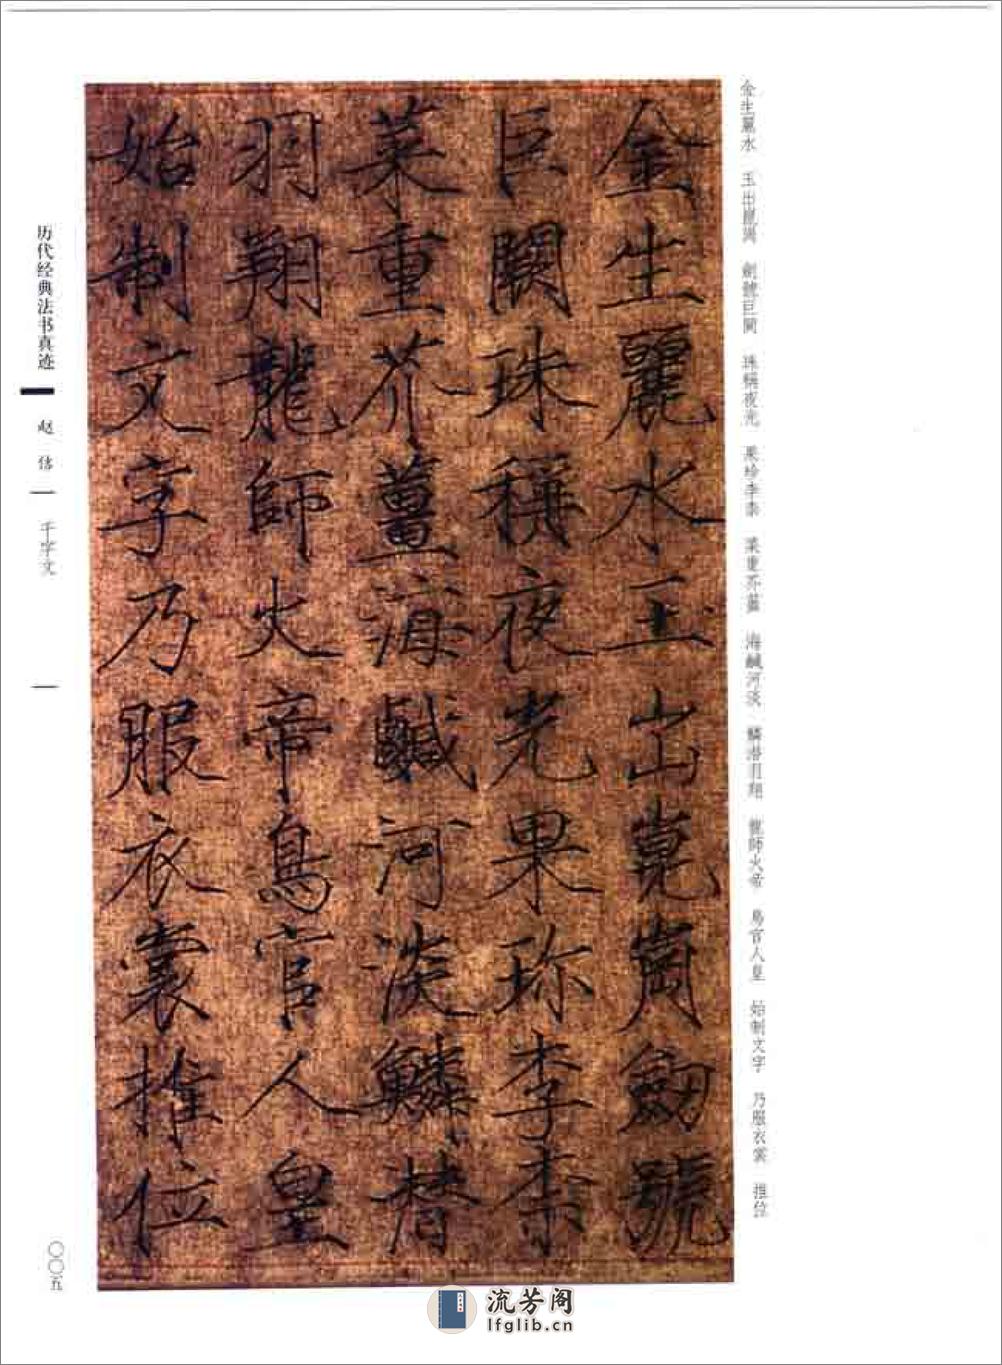 金生麗水 玉出崑岡 劍號巨闕 珠稱夜光 果珍李柰 菜重芥薑 海鹹河淡 鱗潛羽翔 龍師火帝 鳥官人皇 始制文字 乃服衣裳 推位
金生麗水玉出崑崗劒號
巨闕珠稱夜光果珎李柰
菜重芥薑海鹹河淡鱗潛
羽翔龍師火帝鳥官人皇
始制文字乃服衣裳推位
历代经典法书真迹 赵佶 千字文
〇〇五
流芳阁
lfglib.cn